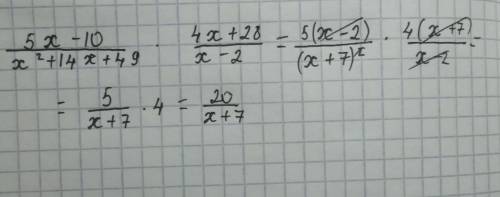 (5x-10)/(x²+14x+49) · (4x+28)/(x-2) = 5(x-2)/(x+7)² · 4(x+7)/(x-2) =
= 5/(x+7) · 4 = 20/(x+7)